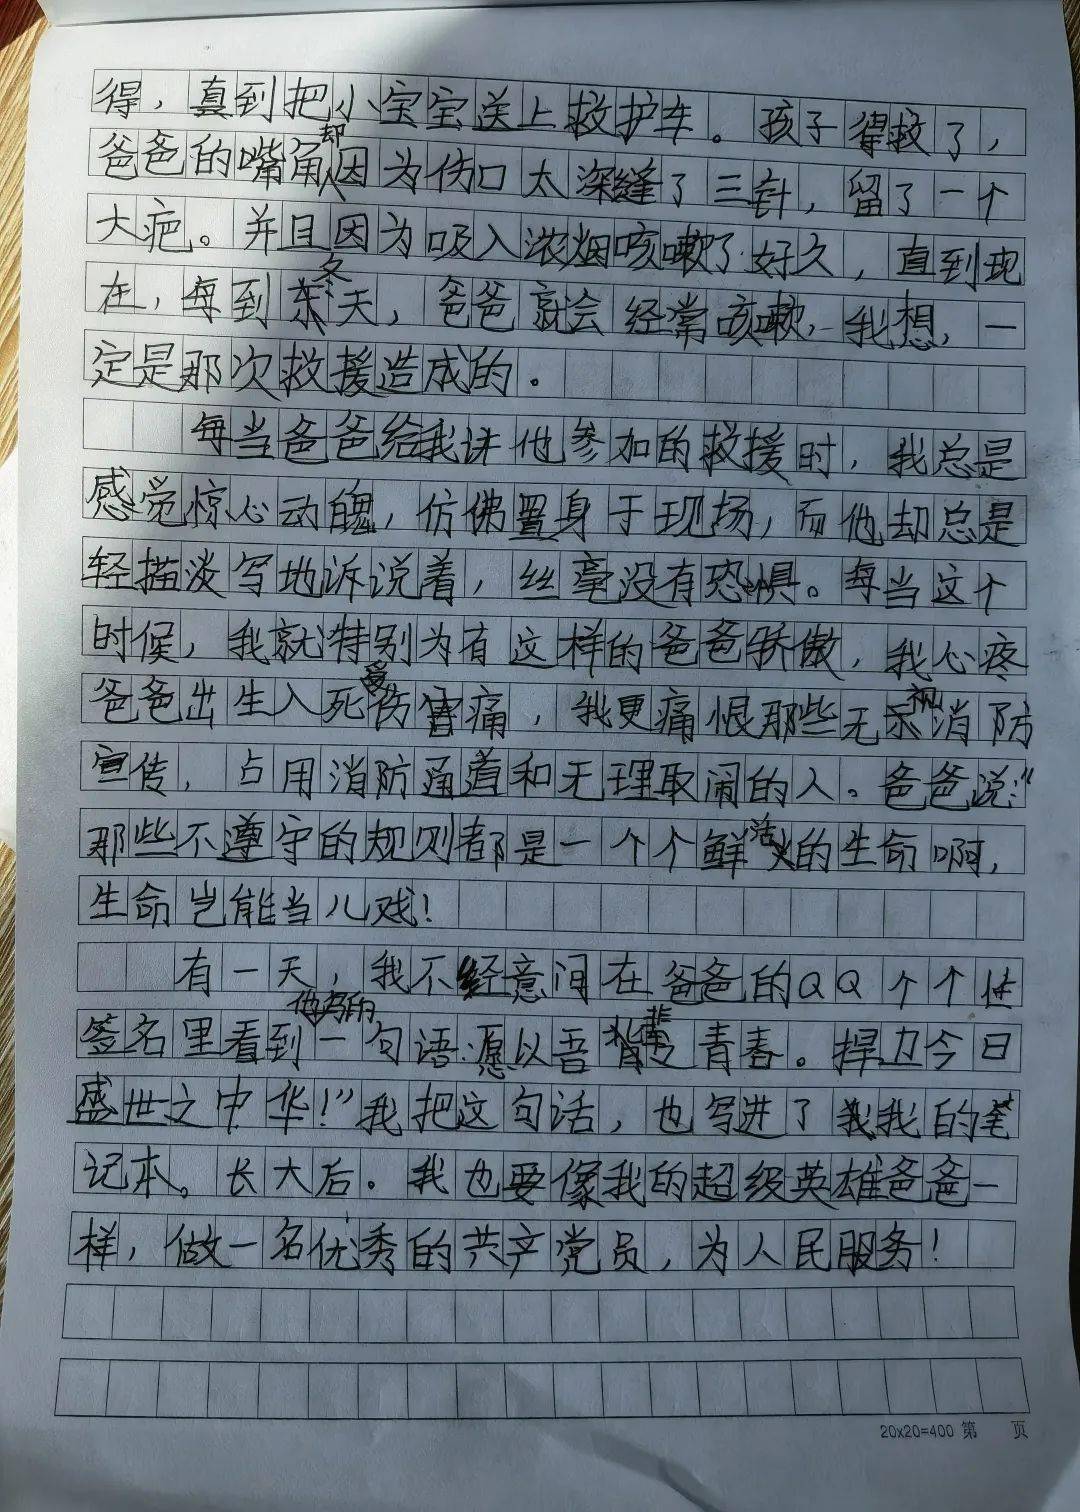 得，真到把小宝宝送上救护车。孩子得救了，
爸爸的嘴角却因为伤口太深缝了三针，留了一个
大疤。并且因为吸入浓烟咳嗽了好久，直到现
在，每到冬天，爸爸就会经常咳嗽，我想，一
定是那次救援造成的。
每当爸爸给我讲他参加的救援时，我总是
感觉惊心动魄，仿佛置身于现场，而他却总是
轻描淡写地诉说着，丝毫没有恐惧。每当这个
时候，我就特别为有这样的爸爸骄傲，我心疼
爸爸出生入死受伤害痛，我更痛恨那些无视消防
宣传，占用消防通道和无理取闹的人。爸爸说：“
那些不遵守的规则都是一个个鲜活的生命啊，
生命岂能当儿戏！
有一天，我不经意间在爸爸的QQ个个性
签名里看到他写的一句语:愿以吾辈青春。捍卫今日
盛世之中华！”我把这句话，也写进了我的笔
记本。长大后。我也要像我的超级英雄爸爸一
样，做一名优秀的共产党员，为人民服务！
20x20=400 第 页